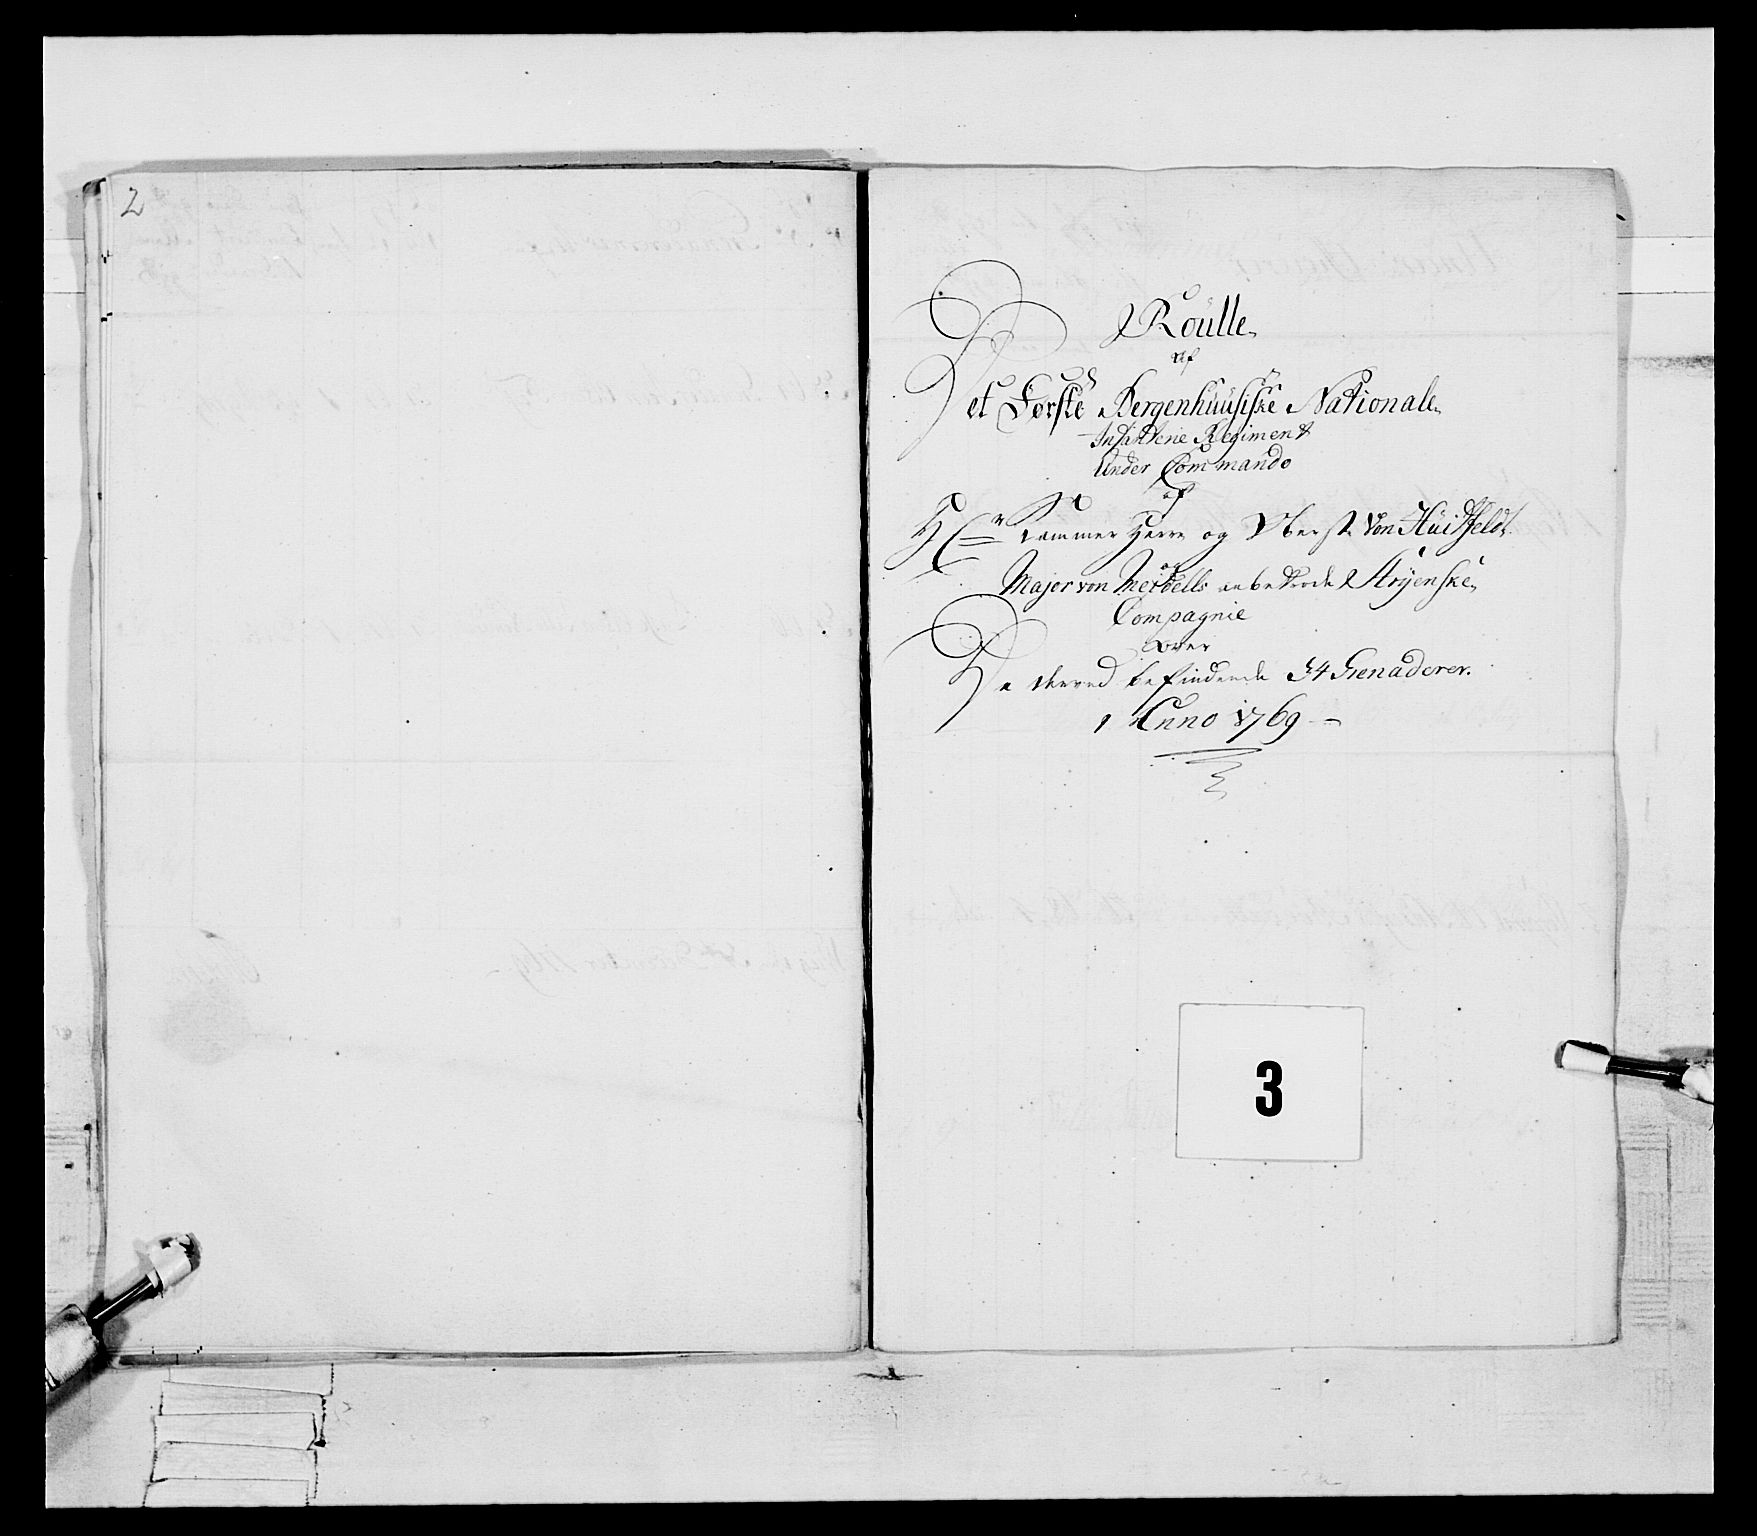 2
Roülle
Af
Det Første Bergenhüüsiske Nationale
Infanterie Regiment
Under Commando
af
Hr Cammer Herre og Oberst Von Hüitfeldt
og
Major von anbetroede Aryenske
Compagnie
over
De derved befindende 34 Grenaderer.
Anno 1769
3